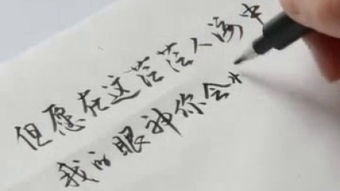 但愿在这茫茫人海中
我的眼神你会